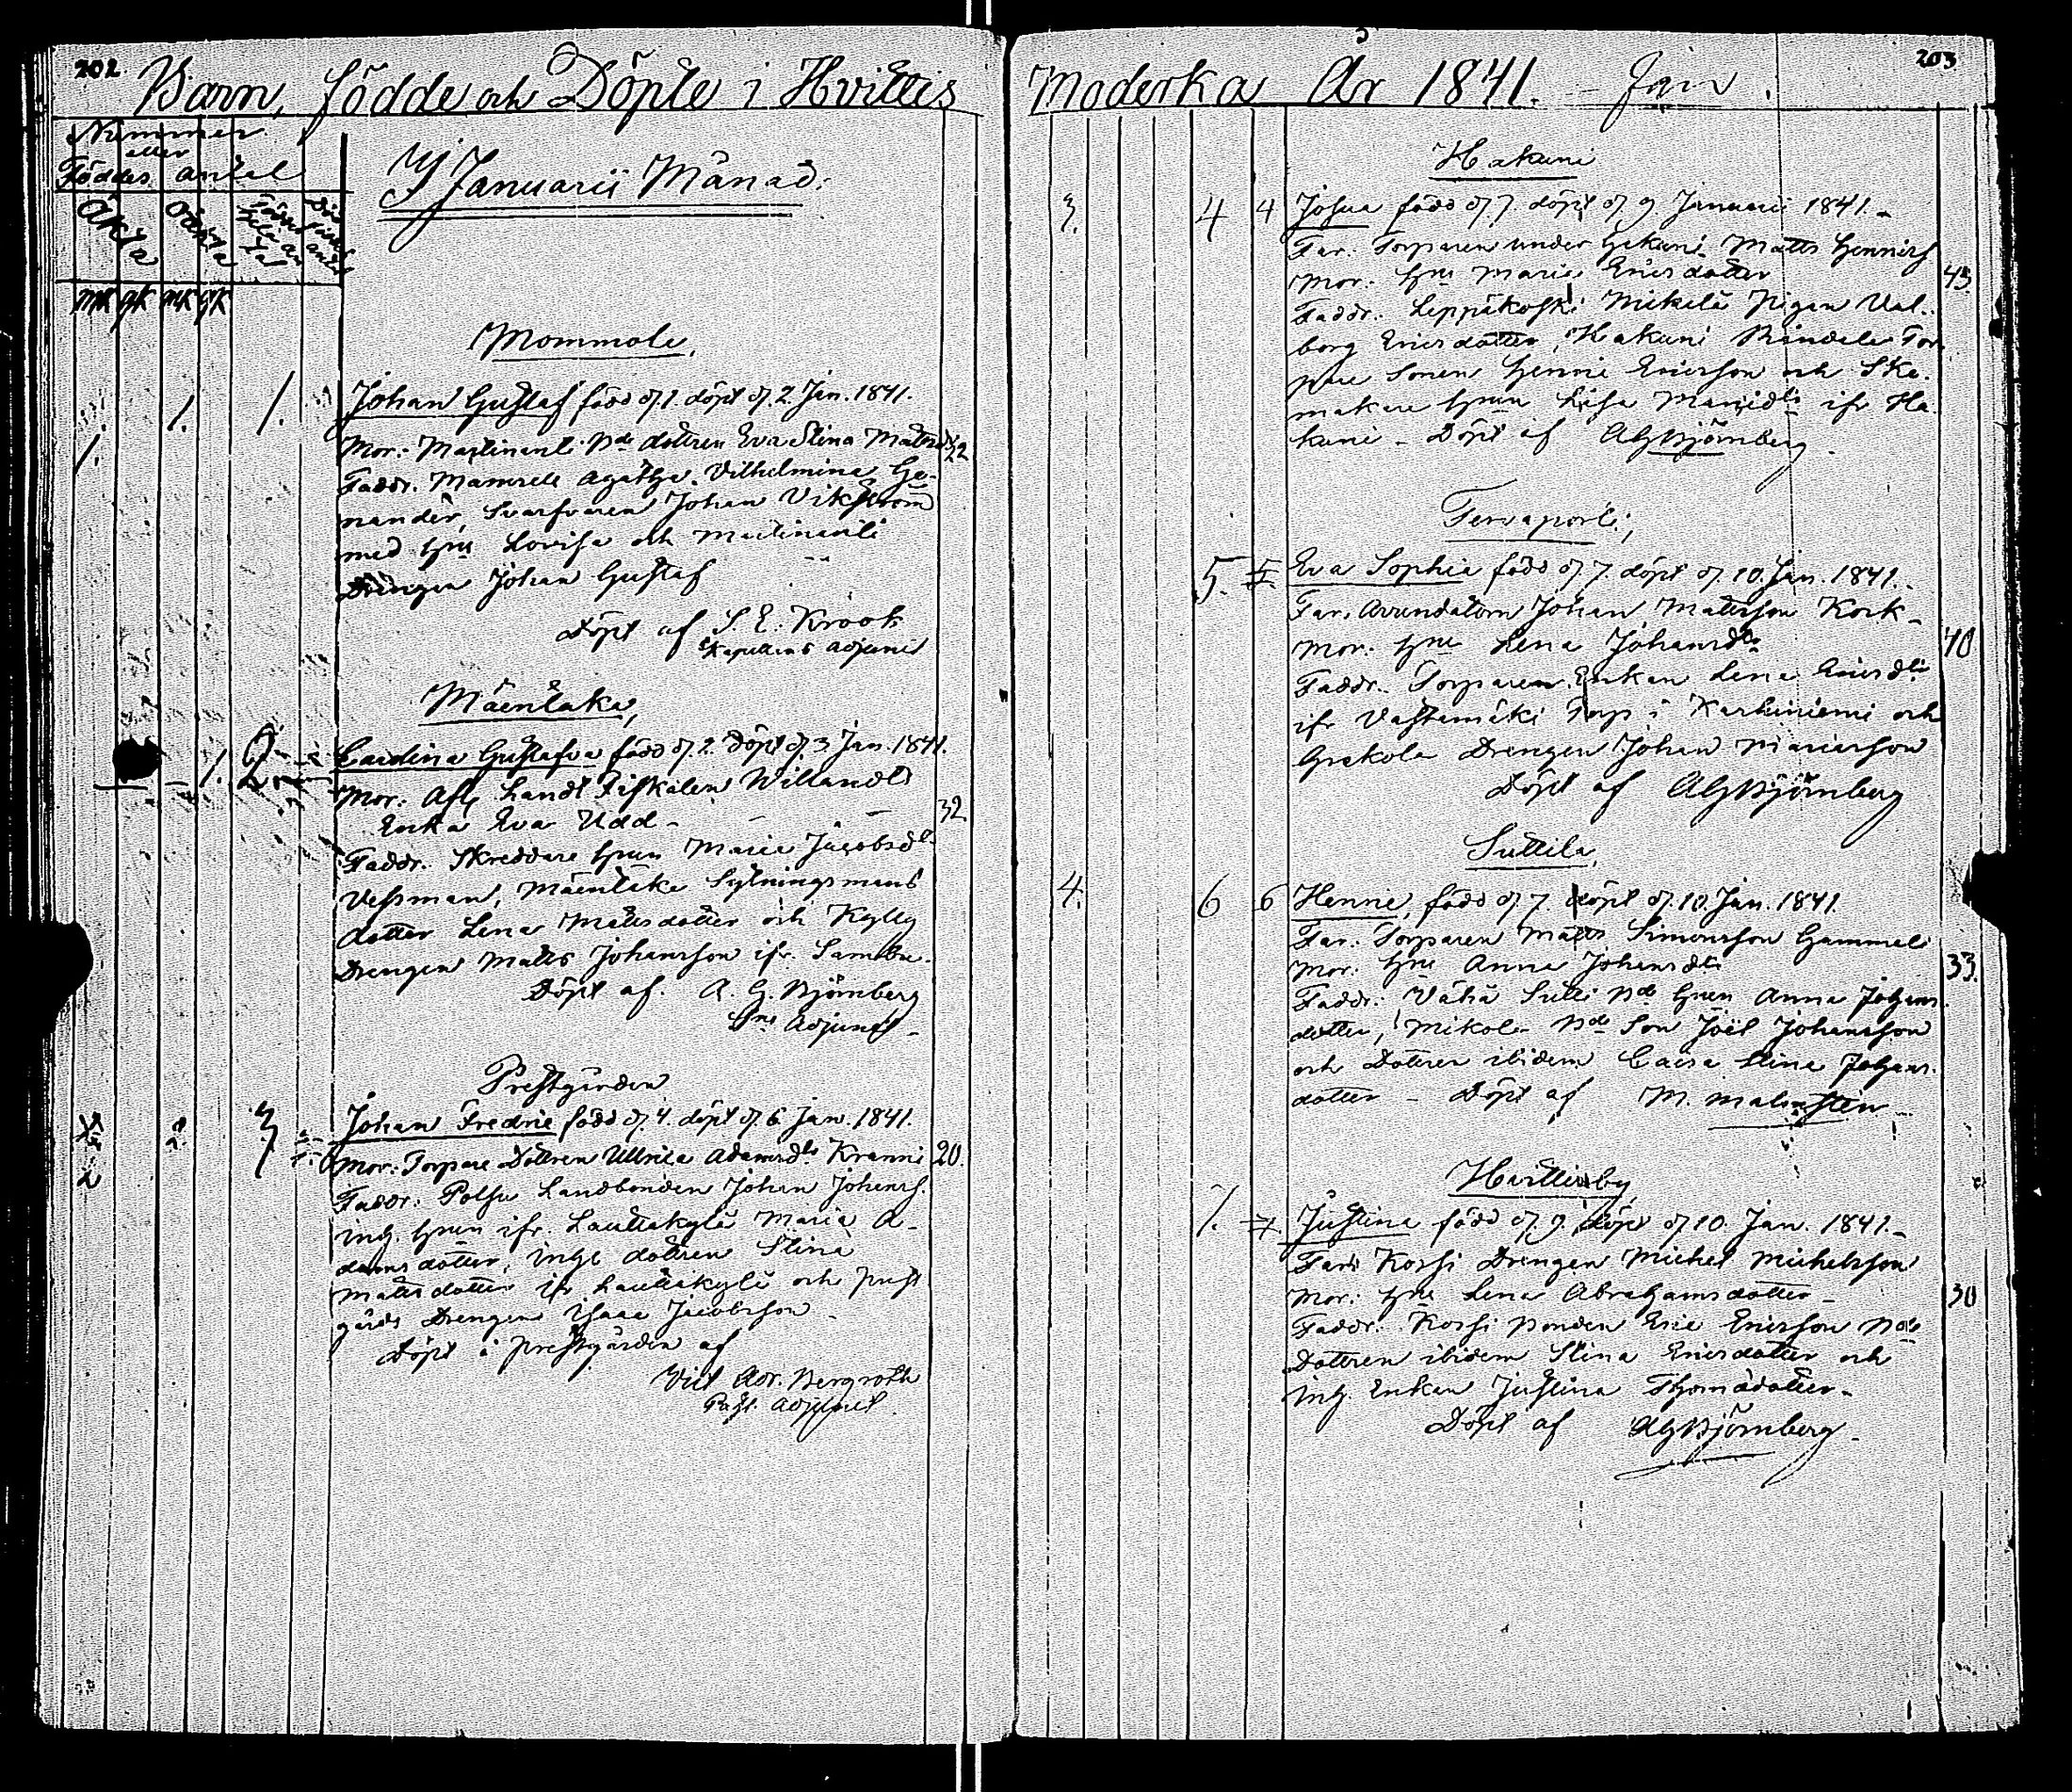 202.
Barn, födde och Döpte i Hvittis
Nummer
eller
Föddes antal
Äkta
Oäkta
mk qk mk qk
I Januarii Månad.
Mommola,
1. 1. 1. Johan Gustaf född d. 1. döpt d. 2. Jan. 1841.
Mor: Dottren Eva Stina 22
Faddr. Mamsell Agatha Vilhelmina Ge-
nander, Svarfvaren Johan Vikström
med Hru Lovisa och
Drengen Johan Gustaf
Döpt af S. E. Krook
Kapellans adjunct
Mäenlaka,
1. 2. Carolina Gustafva född d. 2. Döpt d. 3 Jan. 1841.
Mor: Afl. Landt Fiskalen Willandts
Enka Eva Udd - 32
Faddr. Skreddare Hrun Maria Jacobsdr.
Vessman, Mäenlaka Sytningsmans
dotter Lena Mattsdotter och
Drengen Matts Johansson ifr.
Döpt af. A. G. Björnberg
Adjunct -
Prestgården
2 2. 3 Johan Fredric född d. 4. döpt d. 6. Jan. 1841.
Mor: Torpare Dottren Ullrica Adamsdr Kranni 20.
Faddr: Polsu Landbonden Johan Johans.
Inh. Hrun ifr. Lauttakylä Maria A-
damsdotter, Inhs dottren Stina
Mattsdotter ifr Lauttakylä och prest
gårds Drengen Isaac Jacobsson
Döpt i prestgården af
Vict Adr. Bergroth
Past. Adjunct.
203
Moderka År 1841. - Jan.
Hakuni
3. 4 4 Josua född d. 7. döpt d. 9 Januarii 1841.-
Far: Torparen under Hakuni Matts Henrics
Mor: Hru Maria Ericsdotter 43
Faddr: Leppäkoski Mikkela Pigan Val-
borg Ericsdotter, Hakuni Tor-
pare Sonen Henric Ericsson och Sko-
makare Hrun Lisa ifr Ha
kuni - Döpt af AGBjörnberg
5. 5. Eva Sophia född d. 7. döpt d. 10. Jan. 1841.
Far. Johan Mattsson Kork-
Mor: Hru Lena Johansdr 40
Faddr. Torparen Enkan Lena Ericsdr
ifr Vastamäki Torp i Karhiniemi och
Drengen Johan
Döpt af AGBjörnberg
Suttila,
4. 6 6 Henric, född d. 7. döpt d. 10. Jan. 1841.
Far: Torparen Matts Simonsson Gammel
Mor: Hru Anna Johansdr 33.
Faddr: Vähä Sutti Bde Hrun Anna Johans
dotter, Mikola Bde Son Joël Johansson
och Dottren ibidem Caisa Stina Johans-
dotter - Döpt af M. Malmsten
Hvittisby
7. 7 Justina född d. 9. döpt d. 10. Jan. 1841.-
Far: Kossi Drengen Michel Michelsson
Mor: Hru Lena Abrahamsdotter - 30
Faddr: Kossi Bonden Eric Ericsson Bde
Dottren ibidem Stina Ericsdotter och
Inh. Enkan Justina Thomædotter-
Döpt af AGBjörnberg.